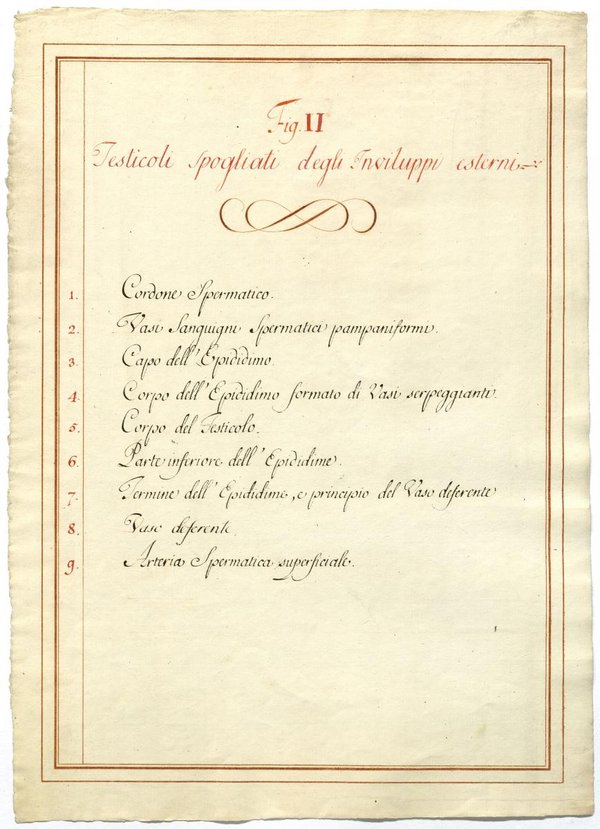 Fig. II
Testicoli Spogliati degli Inviluppi esterni
1. Cordone Spermatico.
2. Vasi Sanguigni Spermatici pampaniformi.
3. Capo dell'Epididimo.
4. Corpo dell'Epididimo formato di Vasi serpeggianti.
5. Corpo del Testicolo.
6. Parte inferiore dell'Epididime.
7. Termine dell'Epididime, e principio del Vaso deferente
8. Vaso deferente.
9. Arteria Spermatica superficiale.